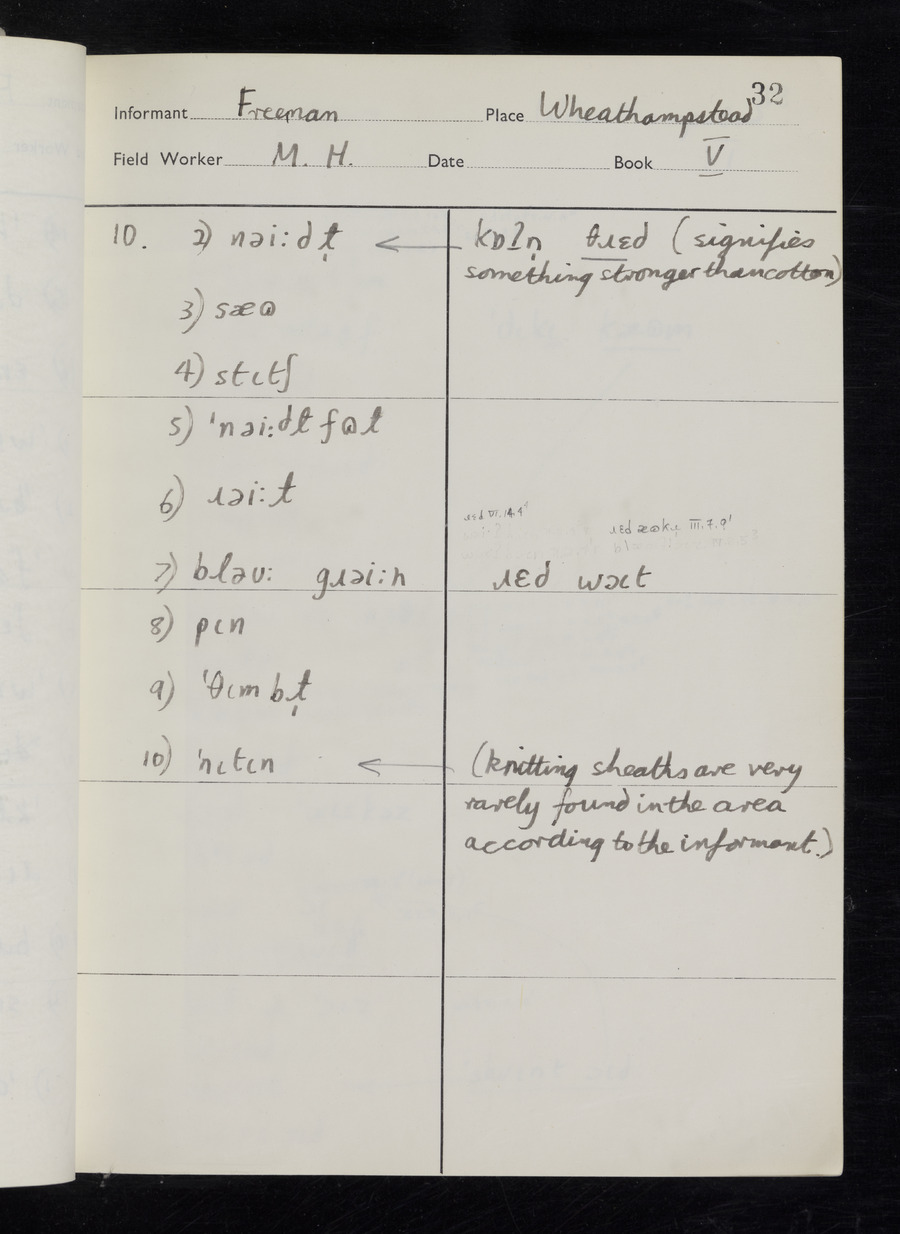 32
Informant Freeman Place Wheathampstead
Field Worker M. H. Date Book V
10. 2) nəi:dɫ̩ ← kɒʔn̩ θɹɛd (signifies
something stronger than cotton)
3) sæɷ
4) stɩtʃ
5) ˈnəi:dɫfɷɫ
6) ɹəi:t
ɹɛd VI.14.4' III.7.9'
7) bləʊ: gɹəi:n ɹɛd
8) pɩn
9) ˈθɩmbɫ̩
10) ˈnɩtɩn ← (knitting sheaths are very
rarely found in the area
according to the informant.)